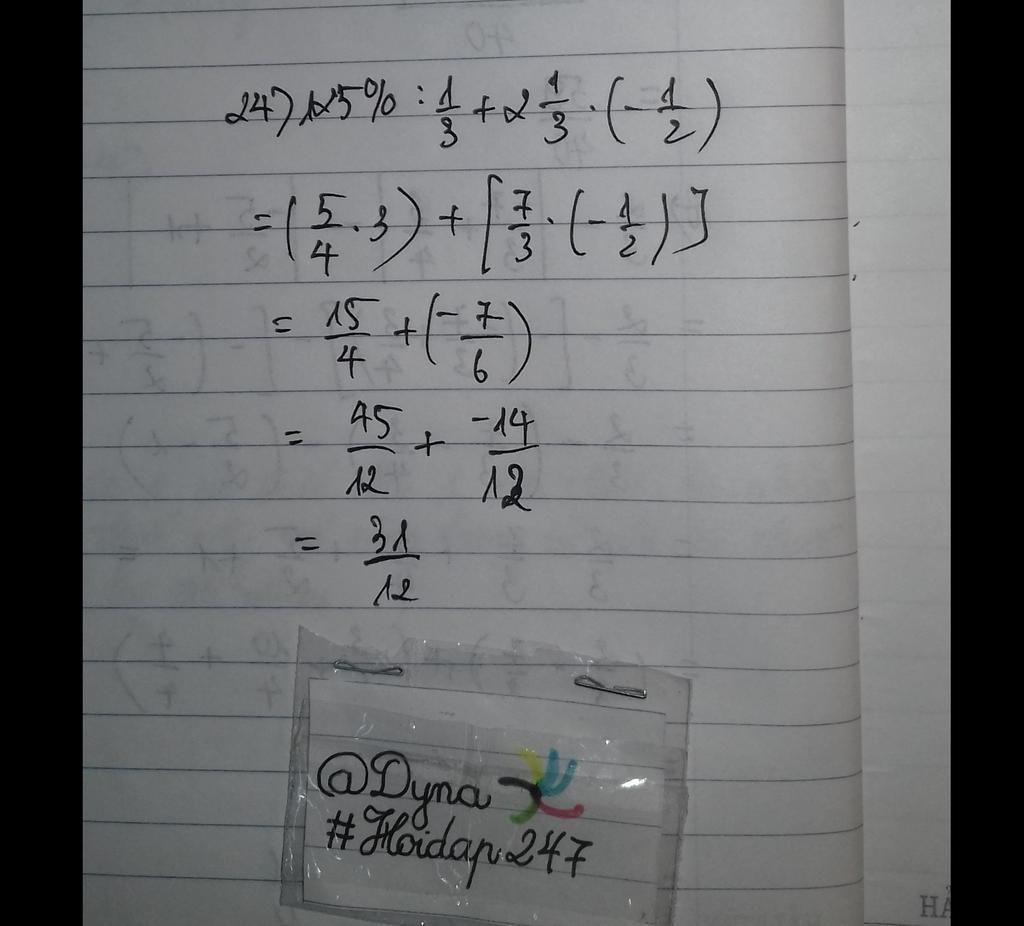 247) 125% : 1/3 + 2 1/3 . (- 1/2)
= (5/4 . 3) + [7/3 . (- 1/2)]
= 15/4 + (- 7/6)
= 45/12 + -14/12
= 31/12
@Dyna
#Hoidap247
HÀ